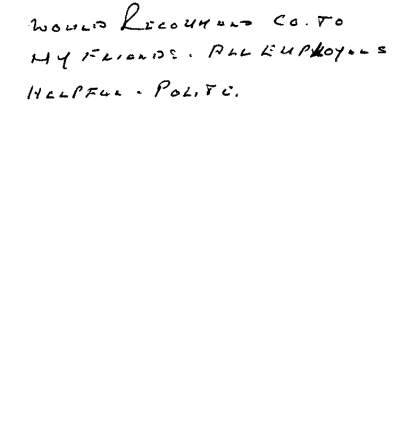 WOULD RECOMMEND CO. TO
MY FRIENDS. ALL EMPLOYEES
HELPFUL. POLITE.